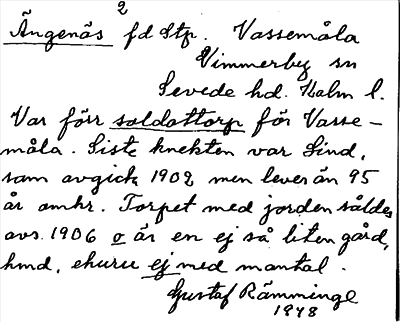 Ängenäs 2 fd Stp. Vassemåla
Vimmerby sn
Sevede hd. Kalm l.
Var förr soldattorp för Vasse-
måla. Siste knekten var Lind,
som avgick 1902 men lever än 95
år omkr. Torpet med jorden såldes
avs. 1906 o är en ej så liten gård,
hmd, ehuru ej med mantal.
Gustaf Rämminge
1948